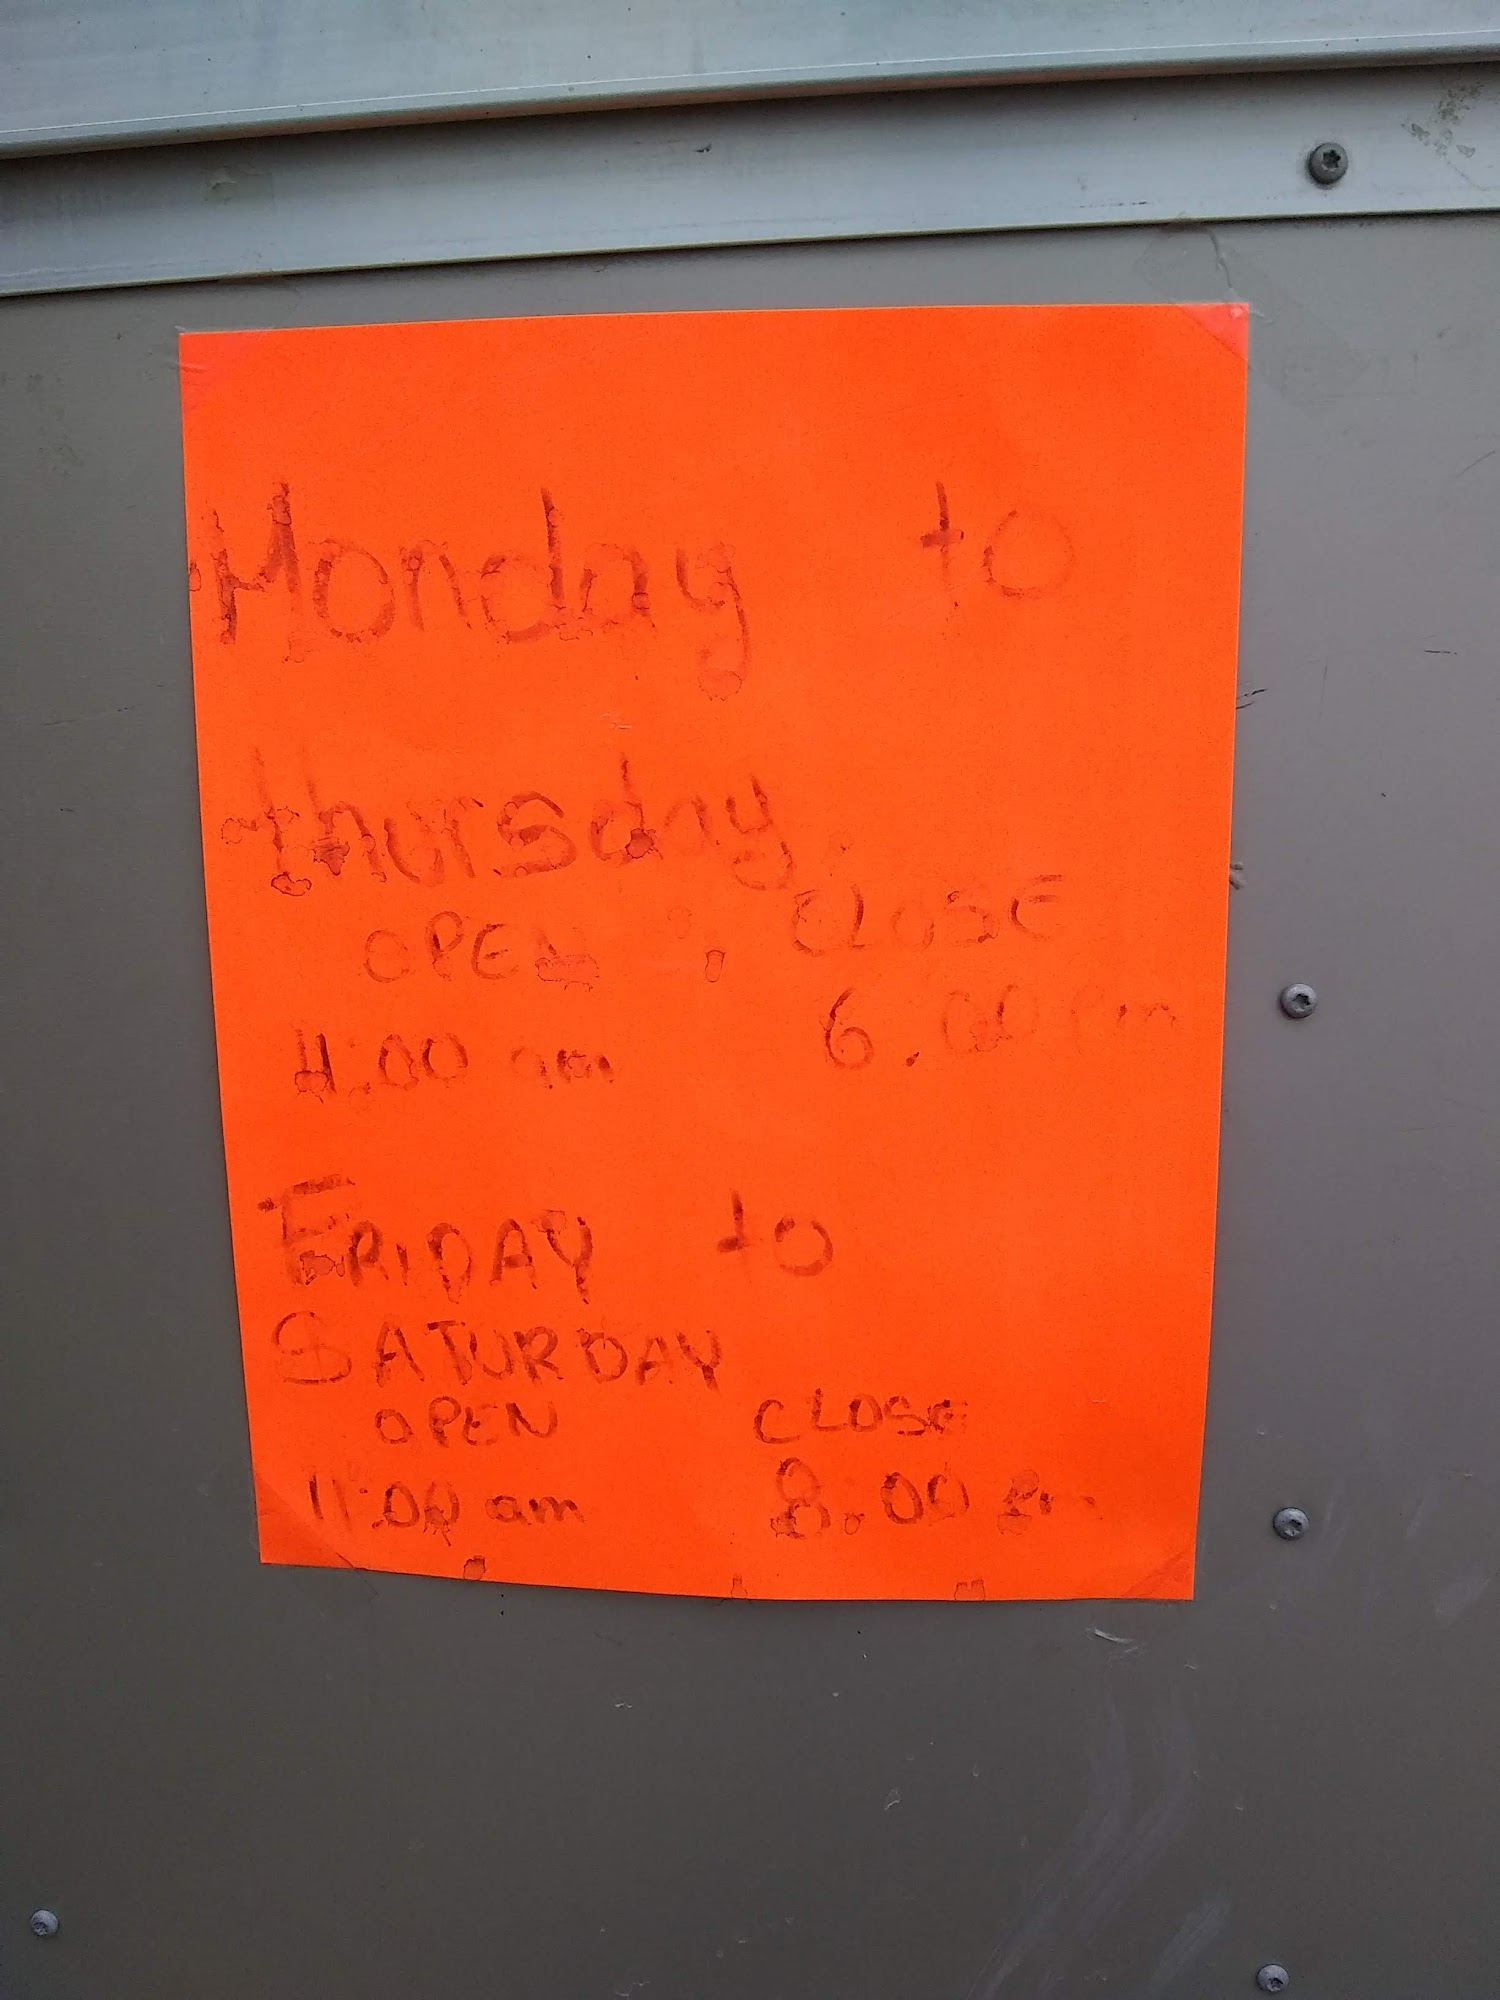 Monday to
thursday
OPEN CLOSE
11:00 am 6.00 pm
FRIDAY to
SATURDAY
OPEN CLOSE
11:00 am 8:00 pm